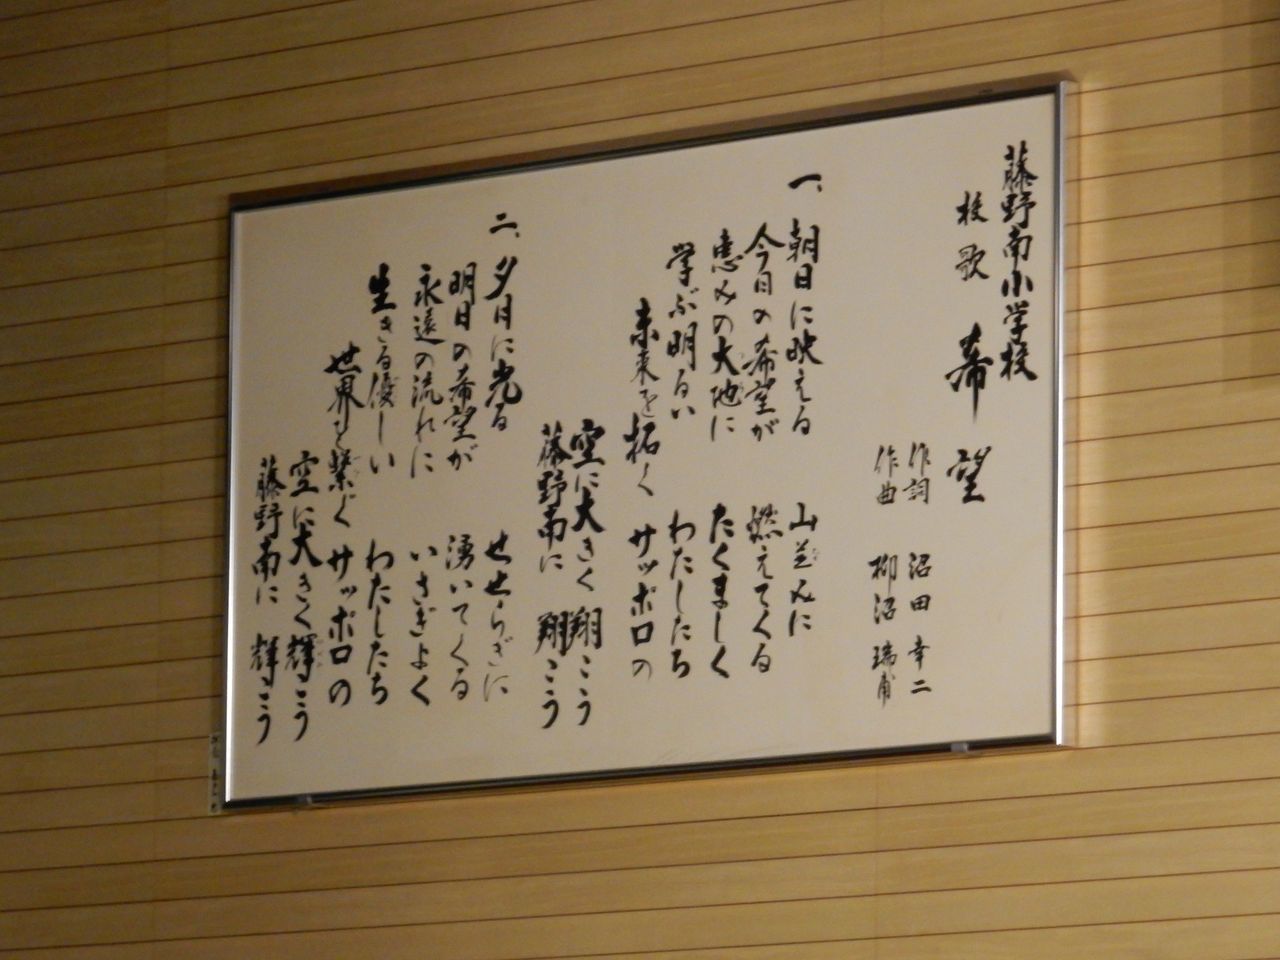 藤野南小学校
校歌 希望
作詞 沼田 幸二
作曲 柳沼 瑞甫
一、朝日に映える 山並みに
今日の希望が 燃えてくる
恵みの大地に たくましく
学ぶ明るい わたしたち
未来を拓く サッポロの
空に大きく 翔こう
藤野南に 翔こう
二、夕日に光る せせらぎに
明日の希望が 湧いてくる
永遠の流れに いさぎよく
生きる優しい わたしたち
世界を繋ぐ サッポロの
空に大きく 輝こう
藤野南に 輝こう